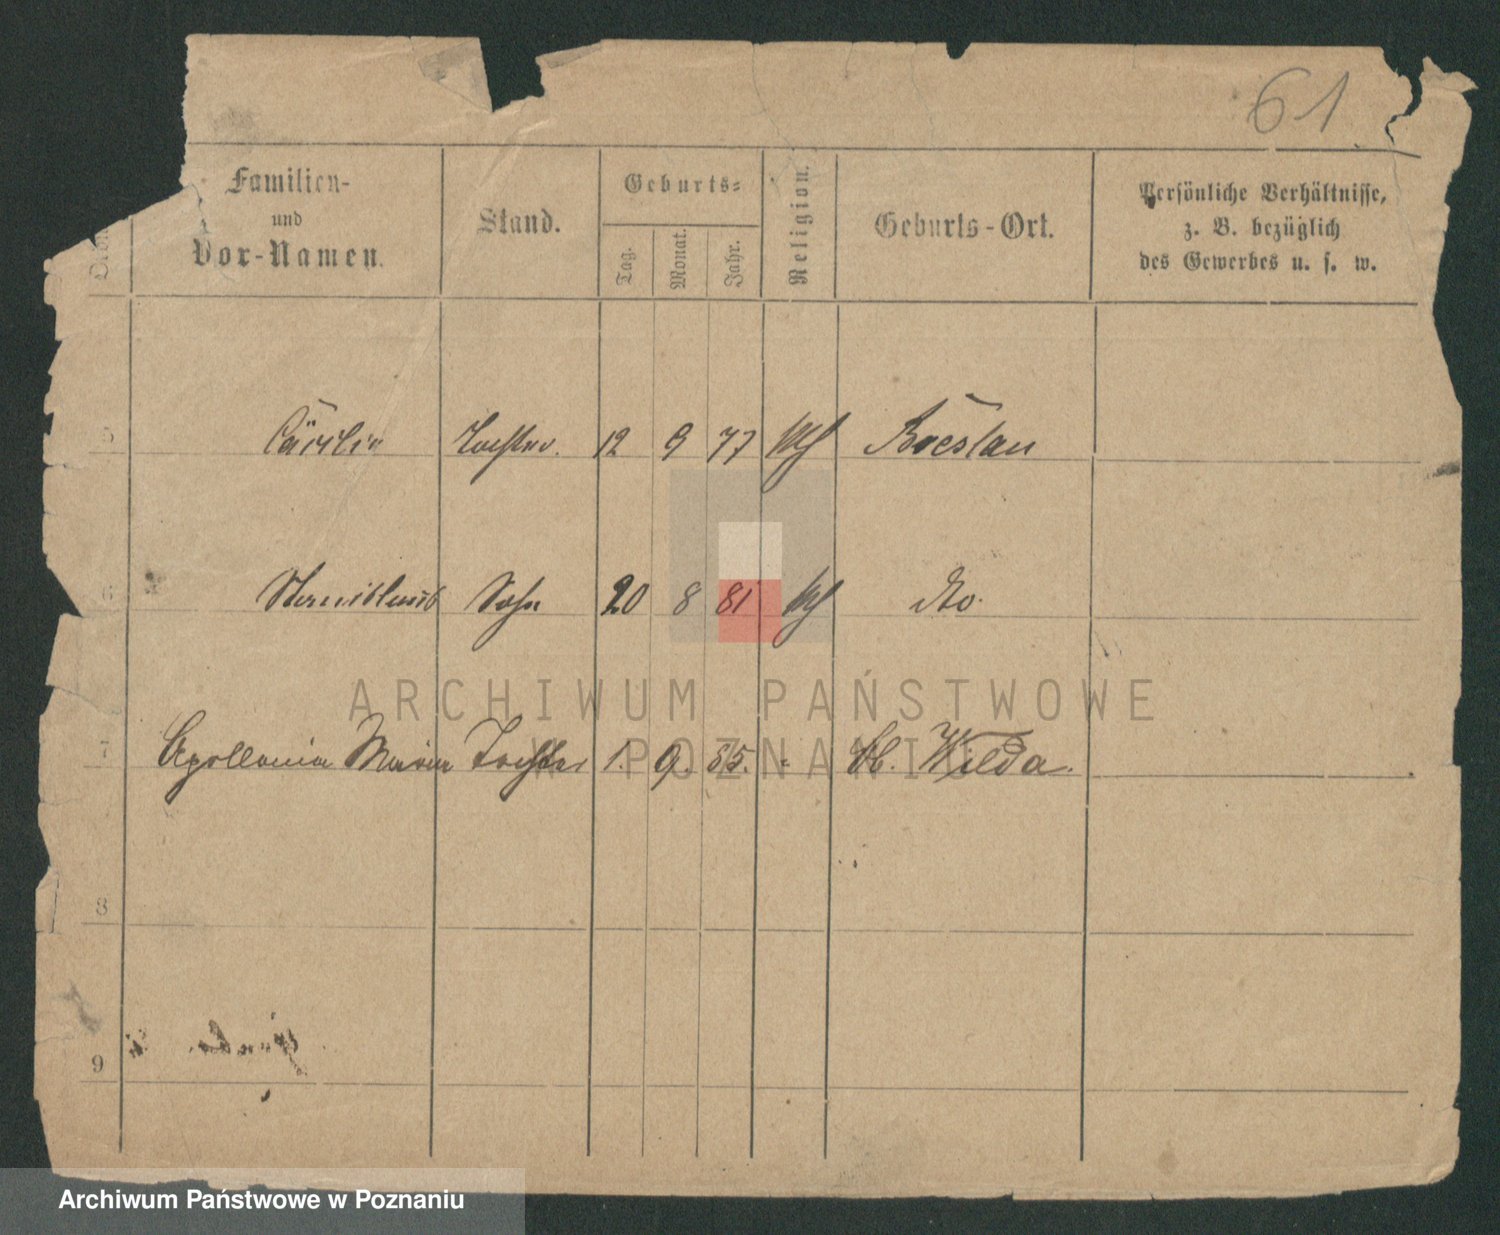 61
Familien-
und
Vor-Namen.
Stand.
Geburts-
Tag.
Monat.
Jahr.
Religion.
Geburts-Ort.
Persönliche Verhältnisse,
z. B. bezüglich
des Gewerbes u. s. w.
5 Cäcilie Tochter. 12 9 77 Breslau
6 Stanislaus Sohn 20 8 81 dto.
7 Apollonia Maria Tochter 1. 9. 85. " Wilda.
8
9
ARCHIWUM PAŃSTWOWE
W POZNANIU
Archiwum Państwowe w Poznaniu